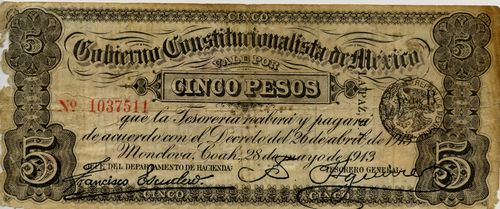 CINCO
5 Gobierno Constitucionalista de México 5
VALE POR
CINCO PESOS
No. 1037511
que la Tesorería recibirá y pagará
de acuerdo con el Decreto del 26 de abril de 1913
Monclova, Coah. 28 de mayo de 1913
5 JEFE DEL DEPARTAMENTO DE HACIENDA: TESORERO GENERAL 5
Francisco Escudero
CINCO CINCO